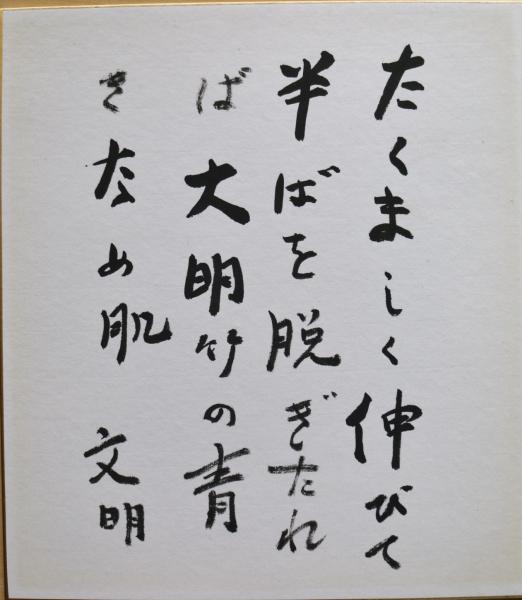 たくましく伸びて
半ばを脱ぎたれ
ば大明竹の青
きなめ肌 文明